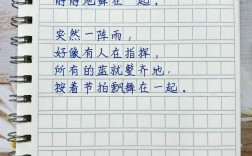 静静地舞在一起。
突然一阵雨，
好像有人在指挥，
所有的蓝就整齐地，
按着节拍飘舞在一起。